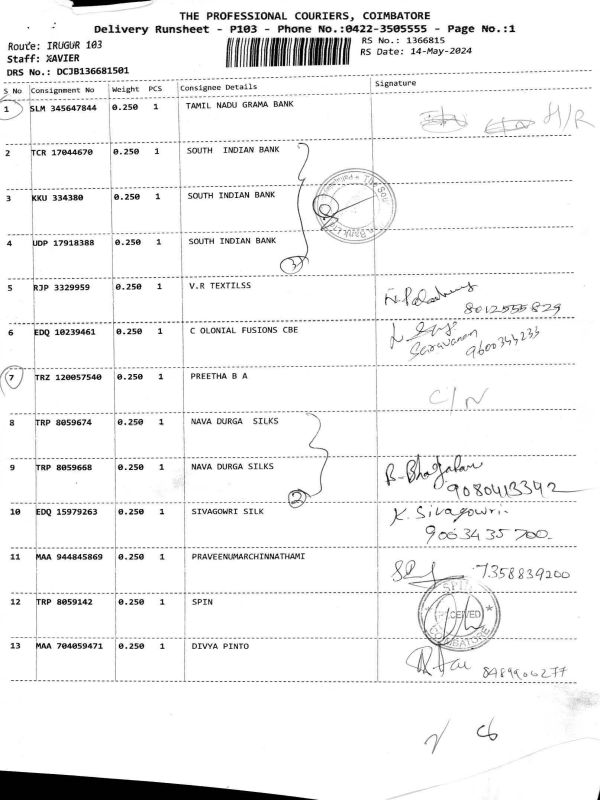 THE PROFESSIONAL COURIERS, COIMBATORE
Delivery Runsheet - P103 - Phone No.:0422-3505555 - Page No.:1
Route: IRUGUR 103
RS No.: 1366815
Staff: XAVIER
RS Date: 14-May-2024
DRS No.: DCJB136681501
S No Consignment No Weight PCS Consignee Details Signature
1 SLM 345647844 0.250 1 TAMIL NADU GRAMA BANK H/R
2 TCR 17044670 0.250 1 SOUTH INDIAN BANK
3 KKU 334380 0.250 1 SOUTH INDIAN BANK
4 UDP 17918388 0.250 1 SOUTH INDIAN BANK
3
5 RJP 3329959 0.250 1 V.R TEXTILSS
8012555829
6 EDQ 10239461 0.250 1 C OLONIAL FUSIONS CBE
Saravanan
9600343233
7 TRZ 120057540 0.250 1 PREETHA B A
C/N
8 TRP 8059674 0.250 1 NAVA DURGA SILKS
9 TRP 8059668 0.250 1 NAVA DURGA SILKS
2
9080413342
10 EDQ 15979263 0.250 1 SIVAGOWRI SILK K. Sivagowri.
9003435700.
11 MAA 944845869 0.250 1 PRAVEENUMARCHINNATHAMI
7358839200
12 TRP 8059142 0.250 1 SPIN
13 MAA 704059471 0.250 1 DIVYA PINTO
8489906277